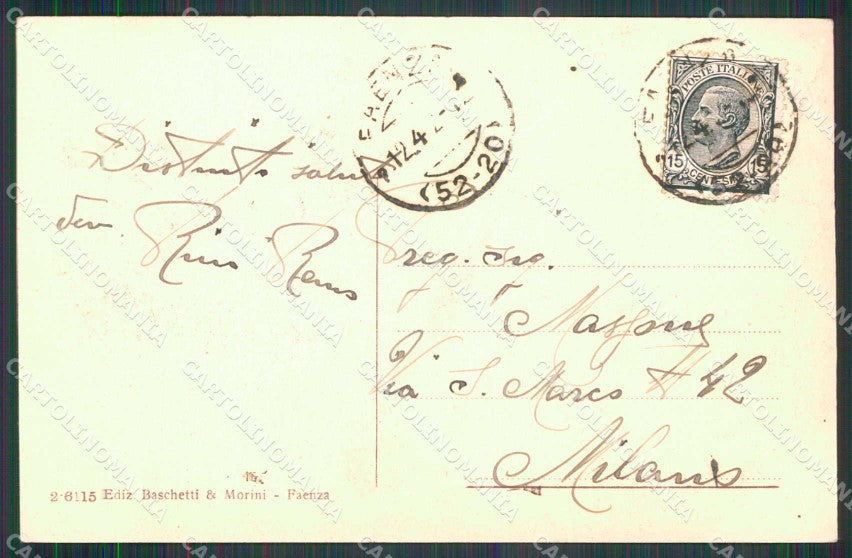 FAENZA
12.4.2
(52-20)
POSTE ITALIANE
15 15
CENTESIMI
Distinti saluti
dev
Rino
Preg. Sig.
Via S. Marco # 42
Milano
2-6115 Ediz. Baschetti & Morini - Faenza
CARTOLINOMANIA